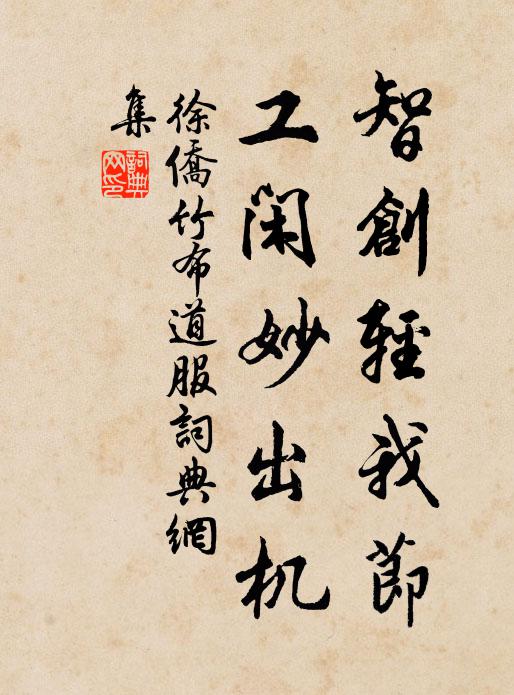 智創輕我節
工闲妙出机
徐僑竹布道服詞典網
集
詞典
网印